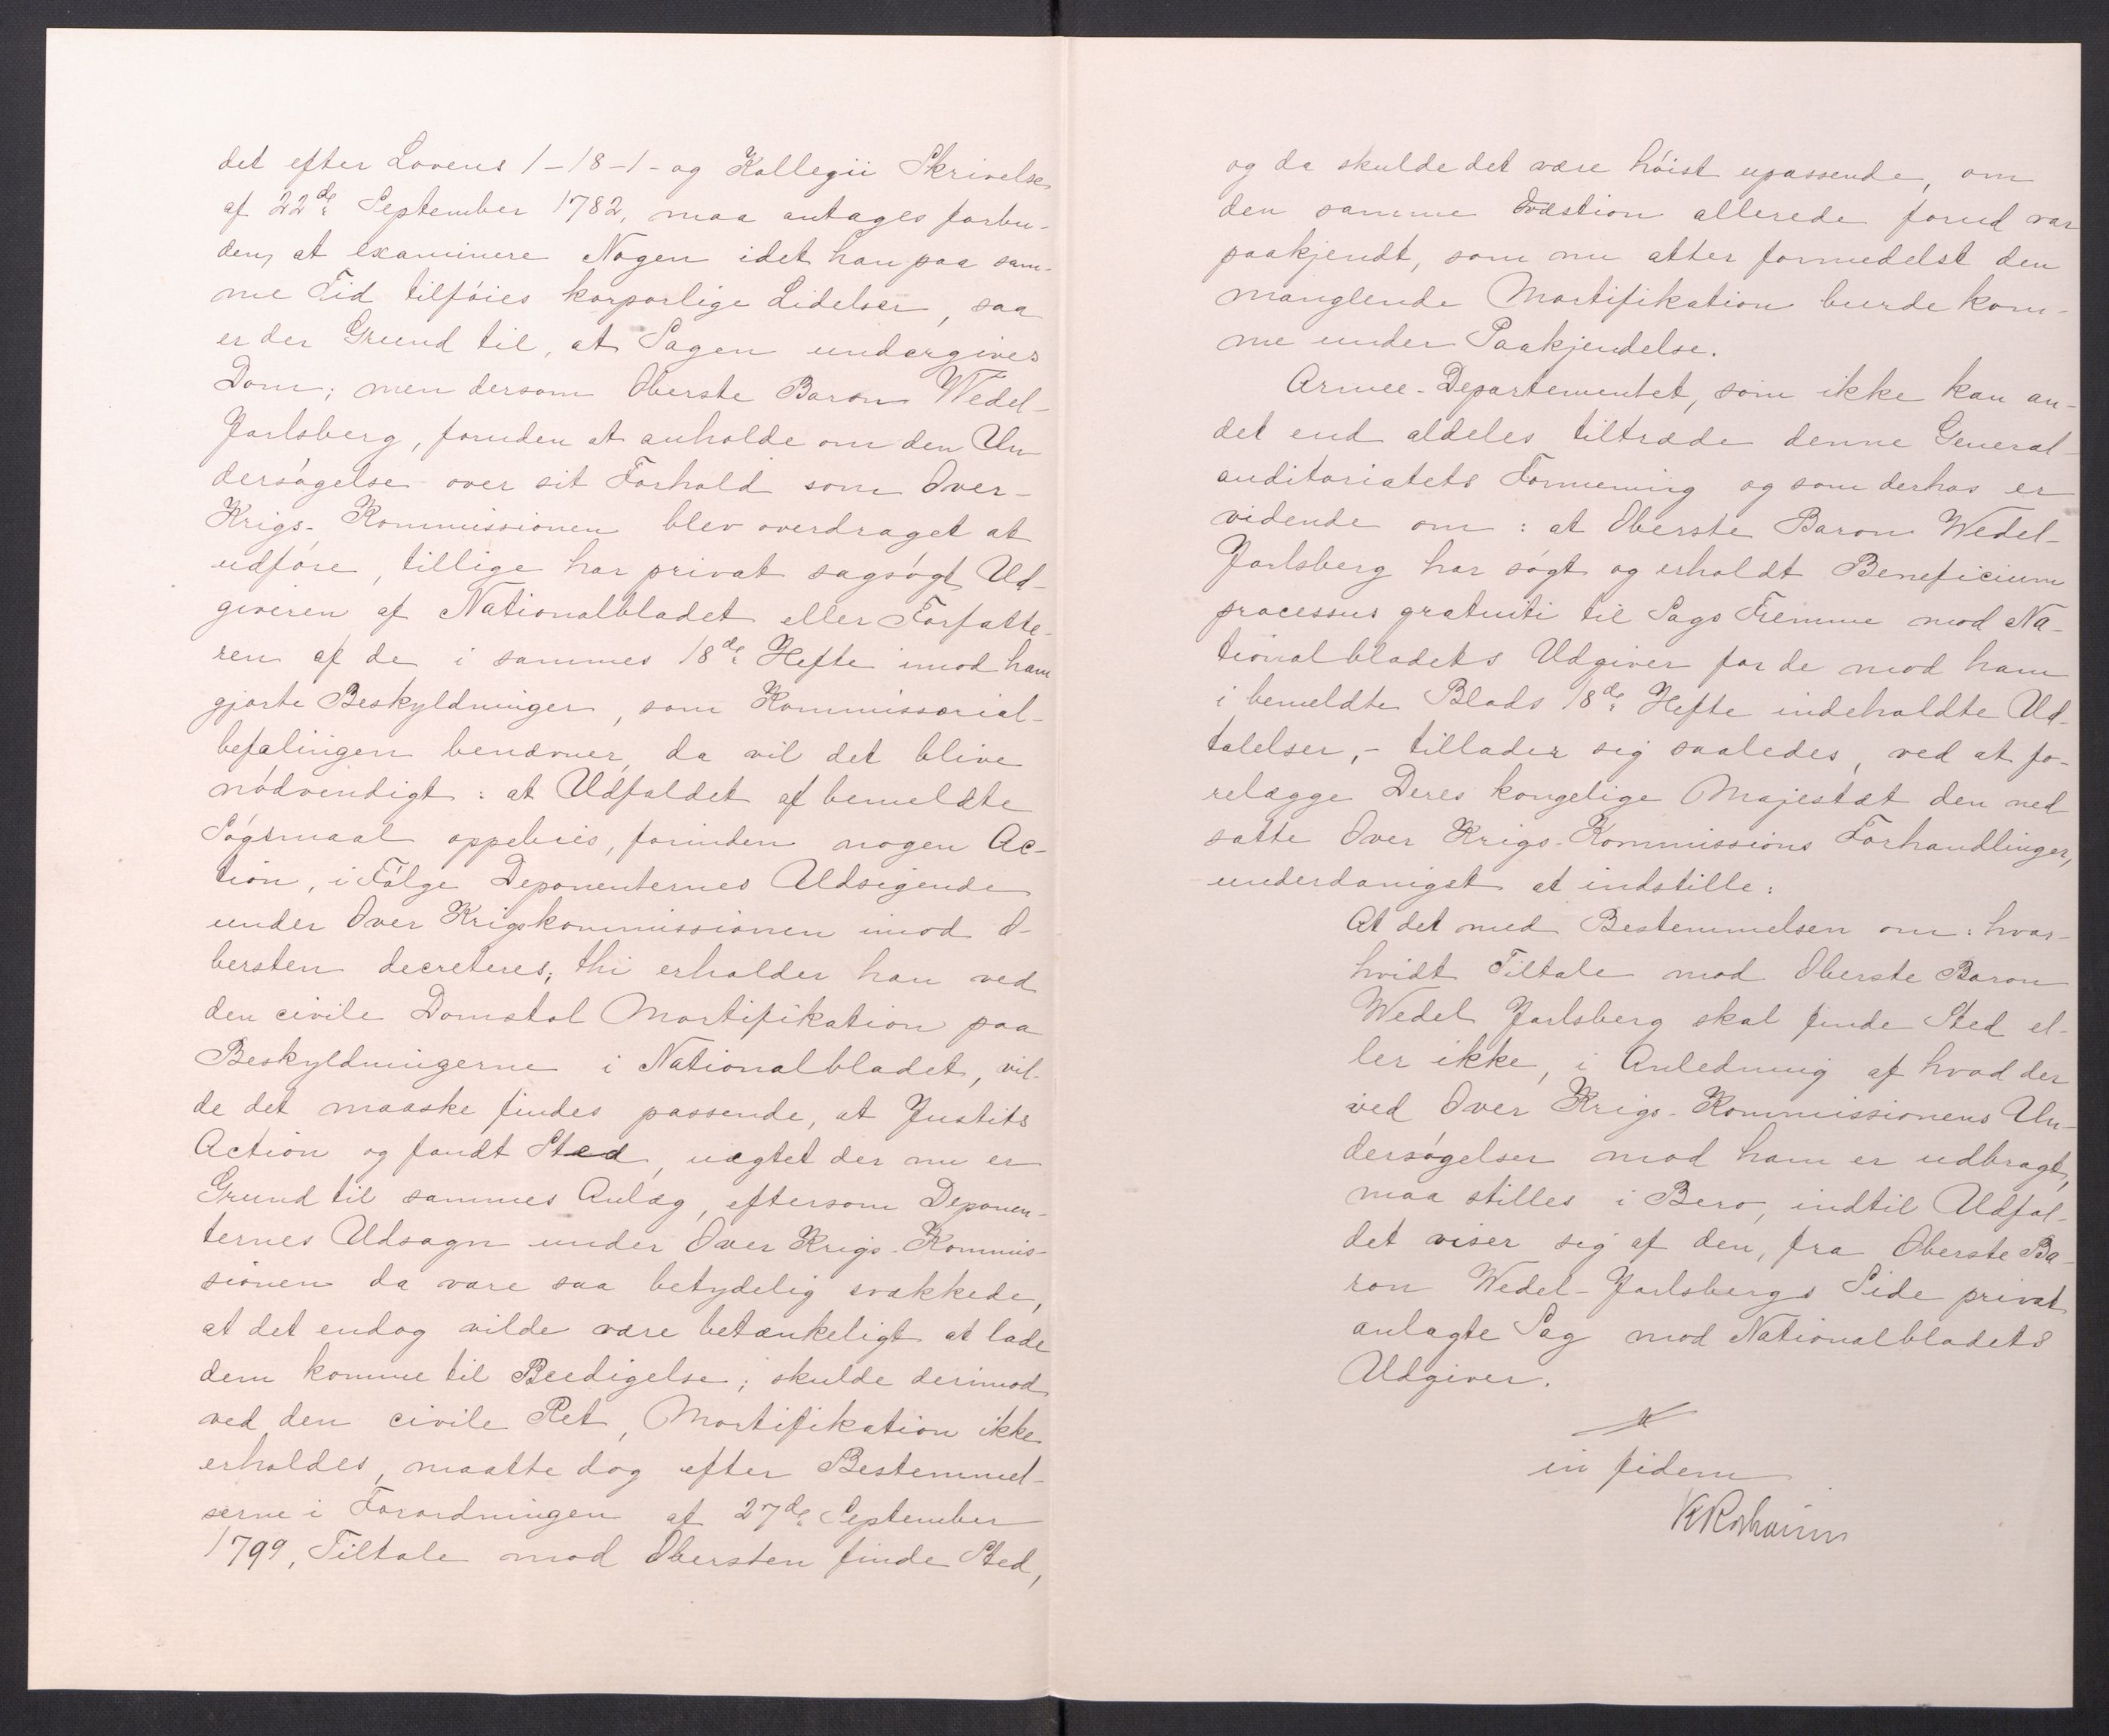 det efter Lovens 1-18-1- og Kollegii Skrivelse
af 22de September 1782, maa antages forbu-
den, at examinere Nogen idet han paa sam-
me Tid tilføies korporlige Lidelser, saa
er der Grund til, at Sagen undergives
Dom; men dersom Oberste Baron Wedel-
Jarlsberg, foruden at anholde om den Un
dersøgelse over sit Forhold som Over-
Krigs-Kommissionen blev overdraget at
udføre, tillige har privat sagsøgt Ud-
giveren af Nationalbladet eller Forfatte-
ren af de i sammes 18de Hefte imod ham
gjorte Beskyldninger, som Kommissorial-
befalingen benævner, da vil det blive
nødvendigt: at Udfaldet af bemeldte
Søgsmaal oppebies, forinden nogen Ac-
tion, i Følge Deponenternes Udsigende
under Over Krigskommissionen imod O-
bersten decreteres; thi erholder han ved
den civile Domstol Mortifikation paa
Beskyldningerne i Nationalbladet, vil-
de det maaske findes passende, at Justits
Action og fandt Sted, uagtet der nu er
Grund til sammes Anlæg, eftersom Deponen-
ternes Udsagn under Over Krigs-Kommis-
sionen da vare saa betydelig svækkede,
at det endog vilde være betænkeligt at lade
dem komme til Beedigelse; skulde derimod
ved den civile Ret, Mortifikation ikke
erholdes, maatte dog efter Bestemmel-
serne i Forordningen af 27de September
1799, Tiltale mod Obersten finde Sted,
og da skulde det være høist upassende, om
den samme Qvæstion allerede forud var
paakjendt, som nu atter formedelst den
manglende Mortifikation burde kom-
me under Paakjendelse.
Armee-Departementet, som ikke kan an-
det end aldeles tiltræde denne General-
auditoriatets Formening og som derhos er
vidende om: at Oberste Baron Wedel-
Jarlsberg har søgt og erholdt Beneficium
processus gratuiti til Sags Fremme mod Na-
tionalbladets Udgiver for de mod ham
i bemeldte Blads 18de Hefte indeholdte Ud-
talelser,- tillader sig saaledes, ved at fo-
relægge Deres kongelige Majestæt den ned
satte Over Krigs-Kommissions Forhandlinger,
underdanigst at indstille:
At det med Bestemmelsen om: hvor-
hvidt Tiltale mod Oberste Baron
Wedel Jarlsberg skal finde Sted el-
ler ikke, i Anledning af hvad der
ved Over Krigs-Kommissionens Un-
dersøgelser mod ham er udbragt,
maa stilles i Bero, indtil Udfal-
det viser sig af den, fra Oberste Ba-
ron Wedel-Jarlsbergs Side privat
anlagte Sag mod Nationalbladets
Udgiver.
in fidem